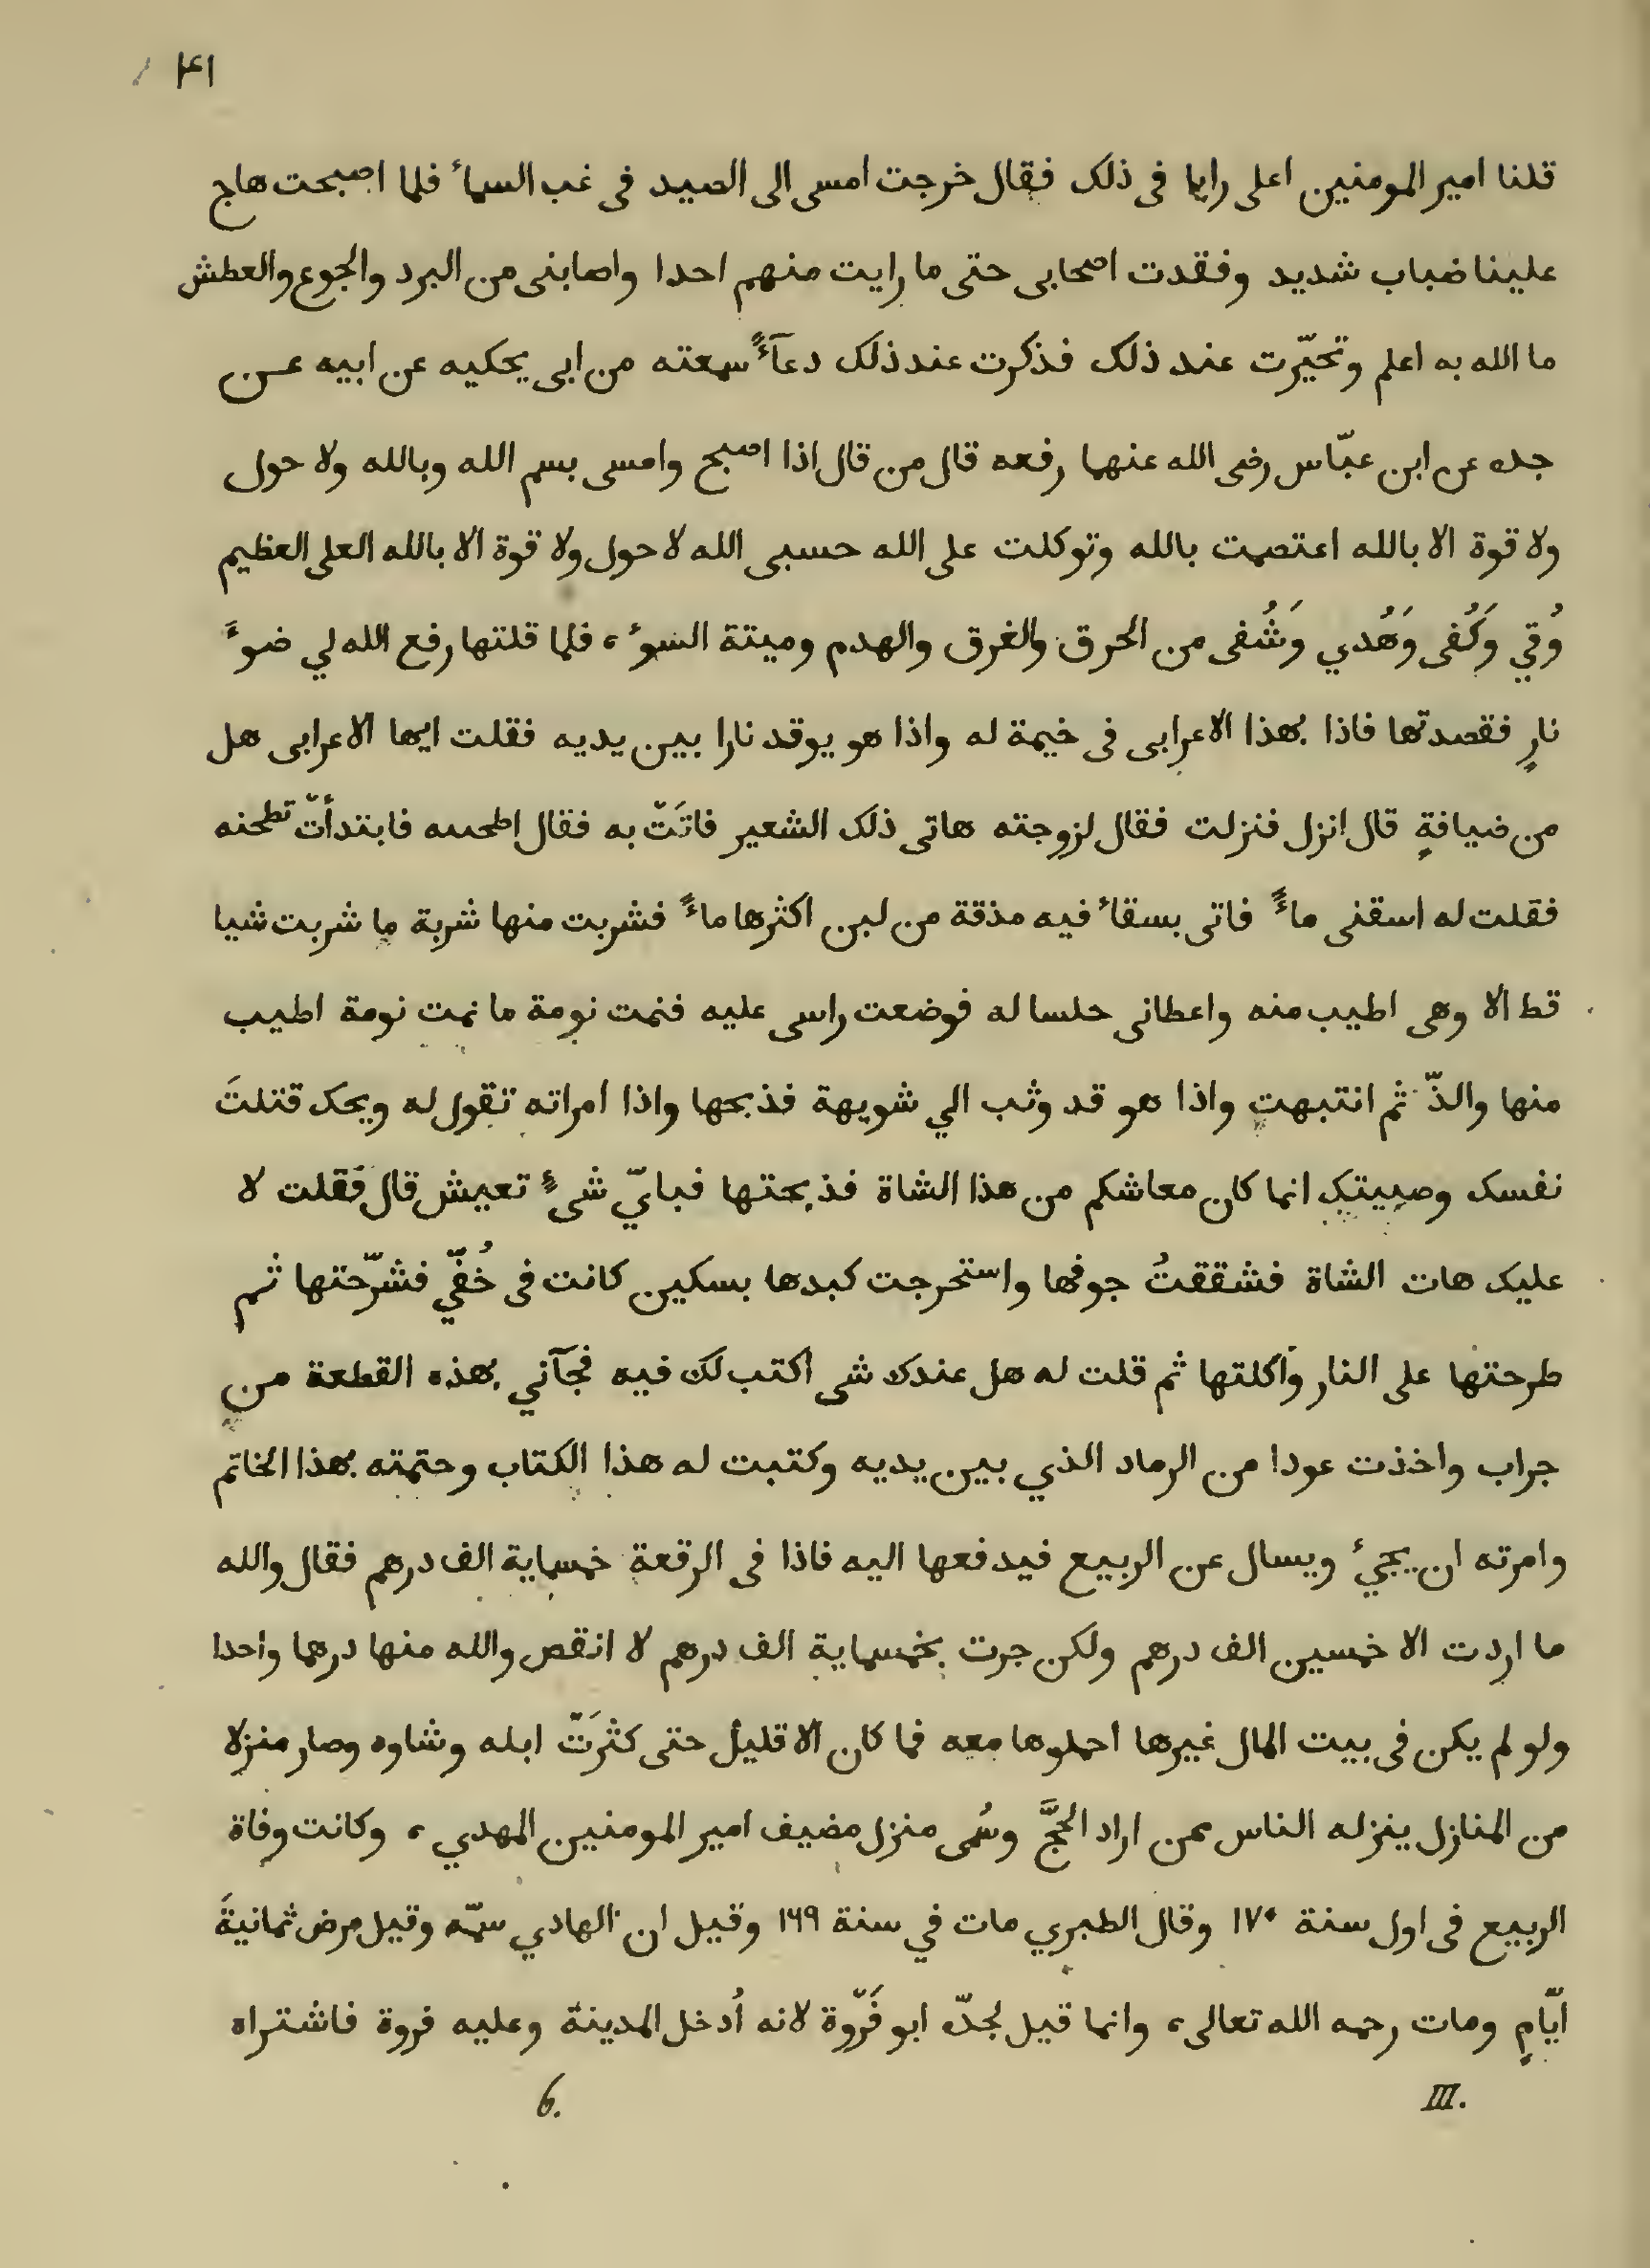 ۴۱
قلنا امير المومنين اعلى رايا فى ذلک فقال خرجت امسى الى الصيد فى غب السماءٔ فلما اصبحت هاج
علينا ضباب شديد وفقدت اصحابى حتى ما رايت منهم احدا واصابنى من البرد والجوع والعطش
ما الله به اعلم وتحيّرت عند ذلک فذكرت عند ذلک دعآءً سمعته من ابى يحكيه عن ابيه عن
جده عن ابن عبّاس رضى الله عنهما رفعه قال من قال اذا اصبح وامسى بسم الله وبالله ولا حول
ولا قوة الا بالله اعتصمت بالله وتوكلت على الله حسبى الله لا حول ولا قوة الا بالله العلى العظيم
وُقي وَكُفى وَهُدي وَشُفى من الحرق والغرق والهدم وميتة السوءٔ، فلما قلتها رفع الله لي ضوءً
نارٍ فقصدتها فاذا بهذا الاعرابى فى خيمة له واذا هو يوقد نارا بين يديه فقلت ايها الاعرابى هل
من ضيافةٍ قال انزل فنزلت فقال لزوجته هاتى ذلک الشعير فاتَتْ به فقال اطحنيه فابتدأتْ تطحنه
فقلت له اسقنى ماءً فاتى بسقاءٔ فيه مذقة من لبن اكثرها ماءً فشربت منها شربة ما شربت شيا
قط الا وهى اطيب منه واعطانى حلسا له فوضعت راسى عليه فنمت نومة ما نمت نومة اطيب
منها والذّ ثم انتبهت واذا هو قد وثب الي شويهة فذبحها واذا امراته تقول له ويحک قتلتَ
نفسک وصبيتک انما كان معاشكم من هذا الشاة فذبحتها فبايّ شىءٍ تعيش قال فقلت لا
عليک هات الشاة فشققتُ جوفها واستخرجت كبدها بسكين كانت فى خُفّي فشرّحتها ثم
طرحتها على النار وأكلتها ثم قلت له هل عندك شى اكتب لك فيه فجآني بهذه القطعة من
جراب واخذت عودا من الرماد الذي بين يديه وكتبت له هذا الكتاب وختمته بهذا الخاتم
وامرته ان يجيءٔ ويسال عن الربيع فيدفعها اليه فاذا فى الرقعة خمسماية الف درهم فقال والله
ما اردت الا خمسين الف درهم ولكن جرت بخمسماية الف درهم لا انقص والله منها درهما واحدا
ولو لم يكن فى بيت المال غيرها احملوها معه فما كان الا قليل حتى كثرَتْ ابله وشاوه وصار منزلا
من المنازل ينزله الناس ممن اراد الحجَّ وسُمى منزل مضيف امير المومنين المهدي، وكانت وفاة
الربيع فى اول سنة ۱۷۰ وقال الطبري مات في سنة ۱۶۹ وقيل ان الهادي سمّه وقيل مرض ثمانيةَ
ايّامٍ ومات رحمه الله تعالى، وانما قيل لجدّه ابو فَرْوة لانه أُدخل المدينة وعليه فروة فاشتراه
III. 6.